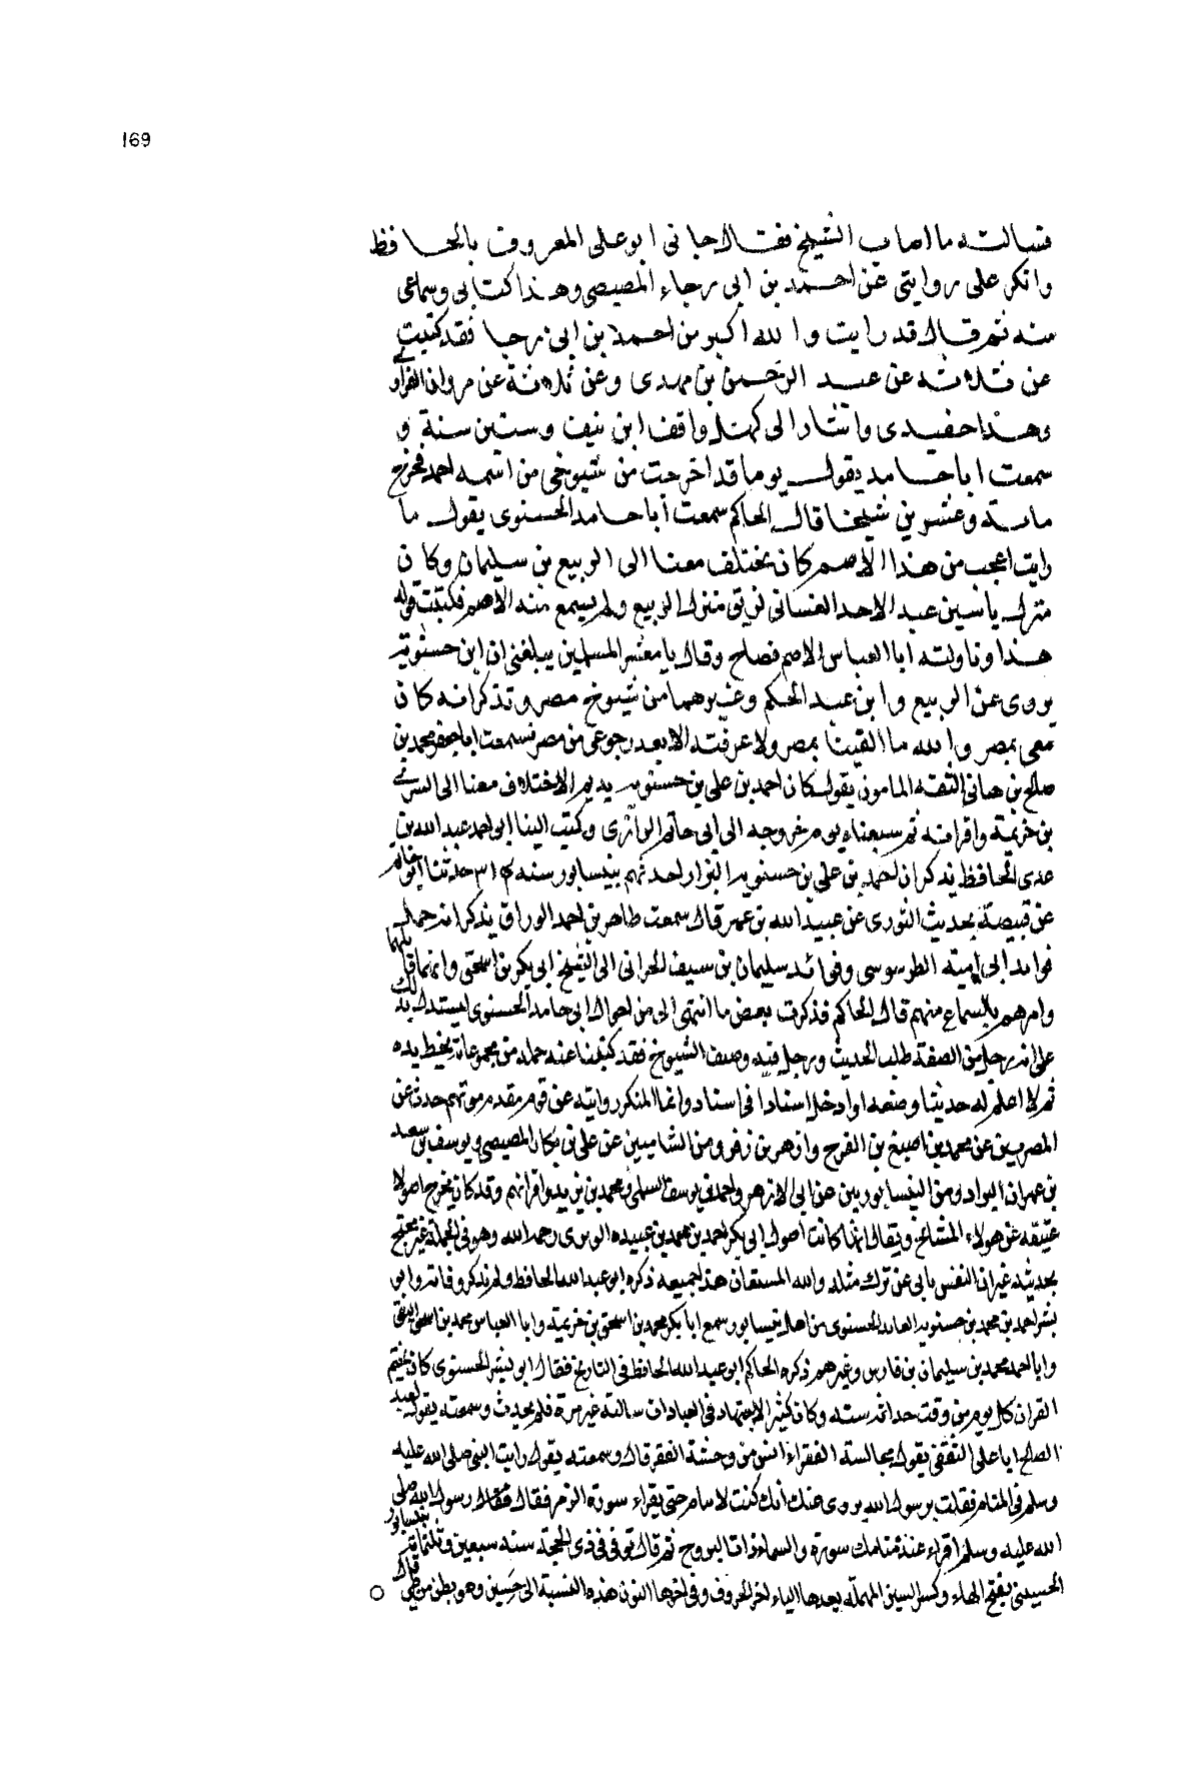 169
فسالته ما اصاب الشيخ فقال جاني ابو علي المعروف بالحافظ
وانكر علي روايتي عن احمد بن ابي رجاء المصيصي وهذا كتابي وسماعي
منه ثم قال قد رايت والله اكبر من احمد بن ابي رجا فقد كتبت
عن ثلاثه عن عبد الرحمن بن مهدى وعن ثلاثة عن مروان الفزاري
وهذا حفيدى واشار الى كهل واقف ابن نيف وستين سنة و
سمعت ابا حامد يقول يوما قد اخرجت من شيوخي من اسمه احمد فخرج
مائة وعشرين شيخا قال الحاكم سمعت أبا حامد الحسنوى يقول ما
رايت اعجب من هذا الاصم كان يختلف معنا الى الربيع بن سليمان وكان
منزل ياسين عبد الاحد القتباني لزيق منزل الربيع ولم يسمع منه الأصم فكتبت قوله
هذا وناولته ابا العباس الاصم فصاح وقال يا معشر المسلمين يبلغني ان ابن حسنويه
يروى عن الربيع وابن عبد الحكم وغيرهما من شيوخ مصر وتذكر انه كان
معي بمصر والله ما التقينا بمصر ولا عرفته الا بعد رجوعي من مصر فسمعت ابا جعفر محمد بن
صالح بن هاني الثقه المامون يقول كان احمد بن علي بن حسنويه يديم الاختلاف معنا الى السرى
بن خزيمة واقرانه ثم سمعناه يوم خروجه الى ابي حاتم الرازى وكتب الينا ابو احمد عبد الله بن
عدى الحافظ يذكر ان احمد بن علي بن حسنويه البزار احد ثهم بنيسابور سنه حدثنا ابو حاتم
عن قبيصة بحديث الثورى عن عبيد الله بن عمر قال سمعت طاهر بن احمد الوراق يذكر انه حمل
فوايد ابى امية الطرسوسي وفوائد سليمان بن سيف الحراني الى الشيخ ابي بكر بن اسحق وانهما قابلهما
وامرهم بالسماع منهم قال الحاكم فذكرت بعض ما انتهى الى من احوال ابي حامد الحسنوى ليستدل بذلك
على انه رجل من الصنعة طلب الحديث ورحل فيه وصنف الشيوخ فقد كتبنا عنه جمله من مجموعاته بخط يده
ثم لا اعلم له حديثا وضعه او ادخل اسنادا في اسناد وانما المنكر روايته عن قوم مقدم موتهم حدث عن
المصريين عن محمد بن اصبغ بن الفرج وازهر بن زفر ومن الشاميين عن علي بن بكار المصيصي ويوسف بن سعيد
ومن النيسابوريين عن ابي الازهر واحمد بن يوسف السلمي ومحمد بن يزيد واقرانهم وقد كان يخرج اصولا
عتيقه عن هولاء المشايخ ويقال انها كانت اصول ابي بكر احمد بن محمد بن عبيده الوبرى رحمه الله وهو في الجملة غير محتج
بحديثه غير ان النفس تابى عن ترك مثله والله المستعان هذا جميعه ذكره ابو عبد الله الحافظ ولم يذكر وفاته وابو
بشر احمد بن محمد بن حسنويه العابد الحسنوى من اهل نيسابور سمع ابا بكر محمد بن اسحق بن خزيمة وابا العباس محمد بن اسحق الثقفي
وابا احمد محمد بن سليمان بن فارس وغيرهم ذكره الحاكم ابو عبد الله الحافظ في التاريخ فقال ابو بشر الحسنوى كان يختم
القران كل يوم من وقت حداثته وكان كثير الاجتهاد في العبادات سالته غير مرة فلم يحدث وسمعته يقول لعبد
الصالح ابا علي الثقفي يقول مجالسة الفقراء انس من وحشة الفقر قال وسمعته يقول رايت النبي صلى الله عليه
وسلم في المنام فقلت يرسول الله يروى عنك أنك كنت لا تنام حتى تقراء سورة الزمر فقال فقال رسول الله صلى
الله عليه وسلم اقراء عند منامك سورة والسماء ذات البروج ثم قال توفي في ذى الحجة سنه سبعين وثلثمائة بنيسابور
الحسيني بفتح الحاء وكسر السين المهمله بعدها الياء اخر الحروف وفي اخرها النون هذه النسبة الى حسين وهو بطن من طي قال